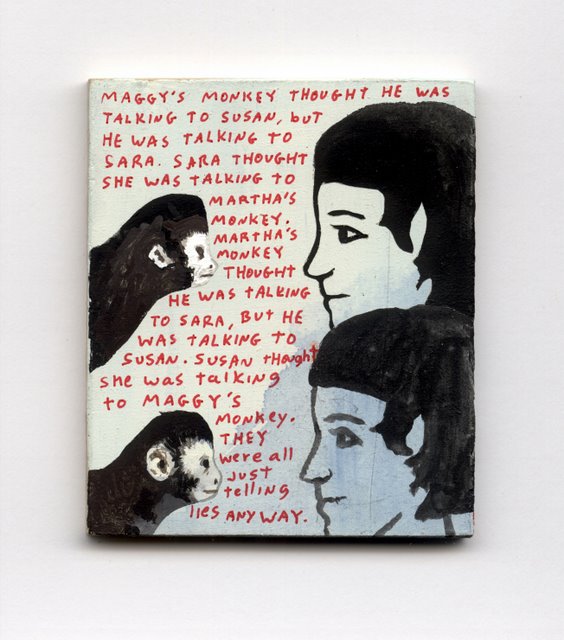 MAGGY'S MONKEY THOUGHT HE WAS
TALKING TO SUSAN, bUT
HE WAS TALKING TO
SARA. SARA THOUGHT
SHE WAS TALKING TO
MARTHA'S
MONKEY.
MARTHA'S
MONKEY
THOUGHT
HE WAS tALKING
TO SARA, BuT HE
WAS TALKING TO
SUSAN. SUSAN tHought
she was talking
to MAGGY'S
MONKEY.
THEY
were all
just
telling
lies ANYWAY.